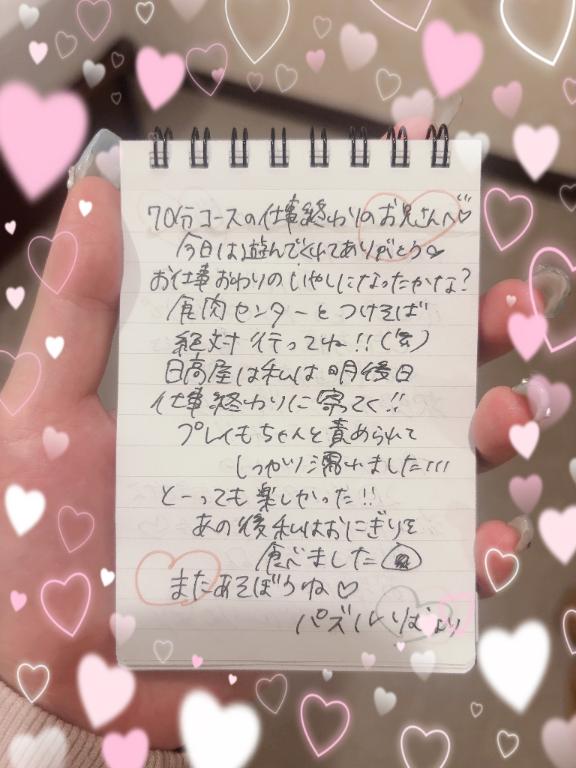 70分コースの仕事終わりのお兄さんへ♡
今日は遊んでくれてありがとう♡
お仕事おわりのいやしになったかな?
食肉センターとつけそば
絶対行ってね!!(笑)
日高屋は私は明後日
仕事終わりに寄てく!!
プレイもちゃんと責められて
しっかり濡れました!!!
とーっても楽しかった!!
あの後私はおにぎりを
食べました🍙
またあそぼうね♡
パズル りむより